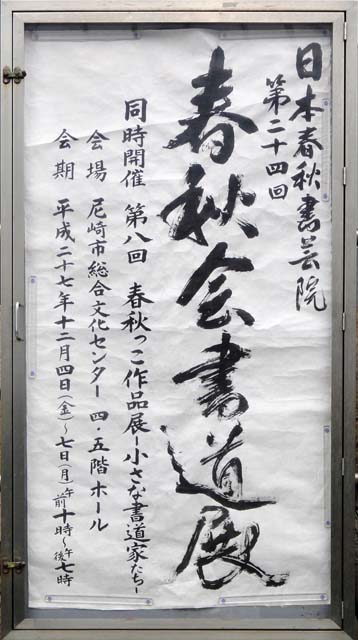 日本春秋書芸院
第二十四回
春秋会書道展
同時開催 第八回 春秋っこ作品展ー小さな書道家たちー
会場 尼崎市総合文化センター 四・五階 ホール
会期 平成二十七年十二月四日(金)~七日(月)午前十時~午後七時